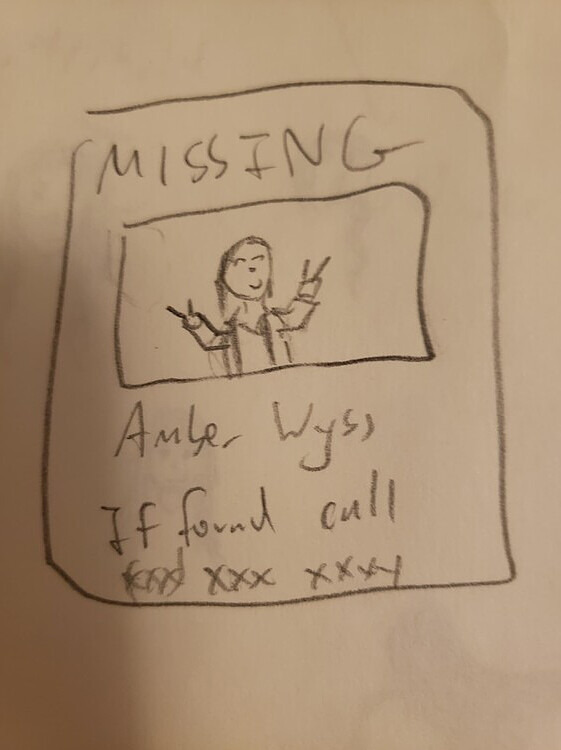 MISSING
Amber Wyss
If found call
xxx xxx xxxx